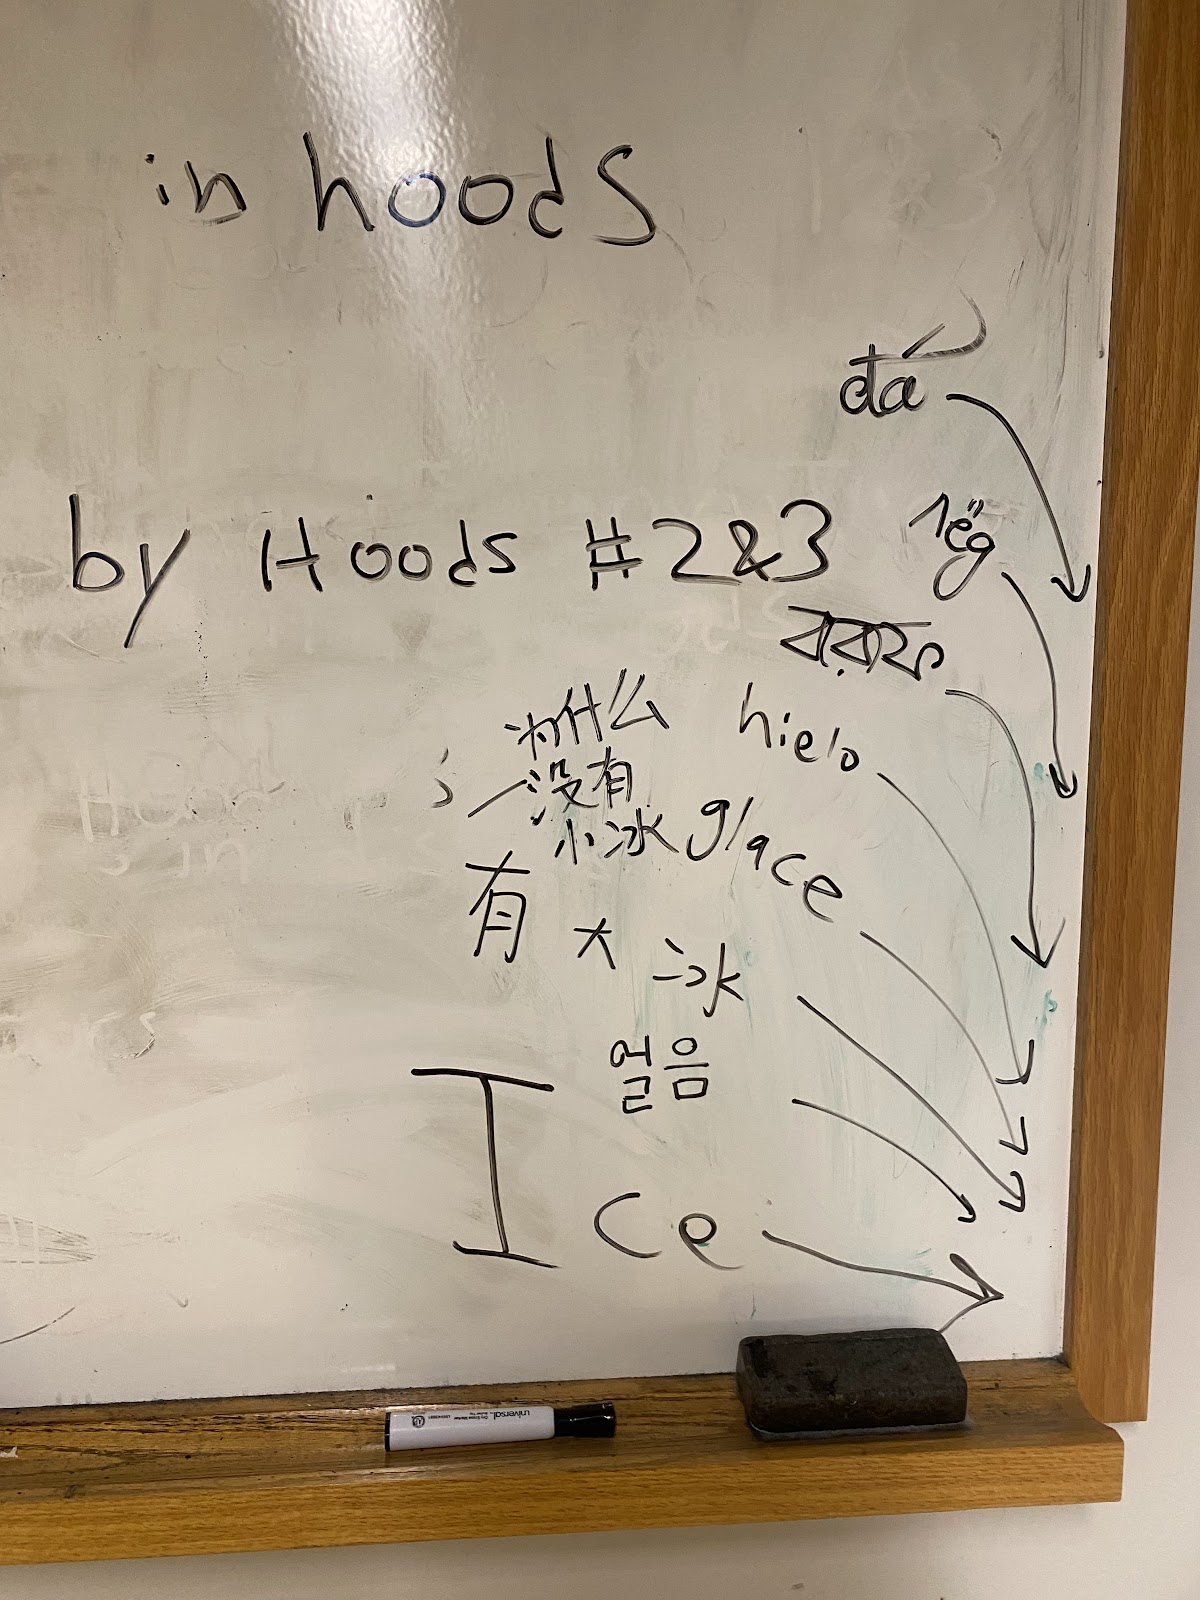 in hoods
đá
by Hoods #2&3
лёд
বরফ
为什么
没有
小冰
hielo
glace
有大冰
얼음
Ice
universal